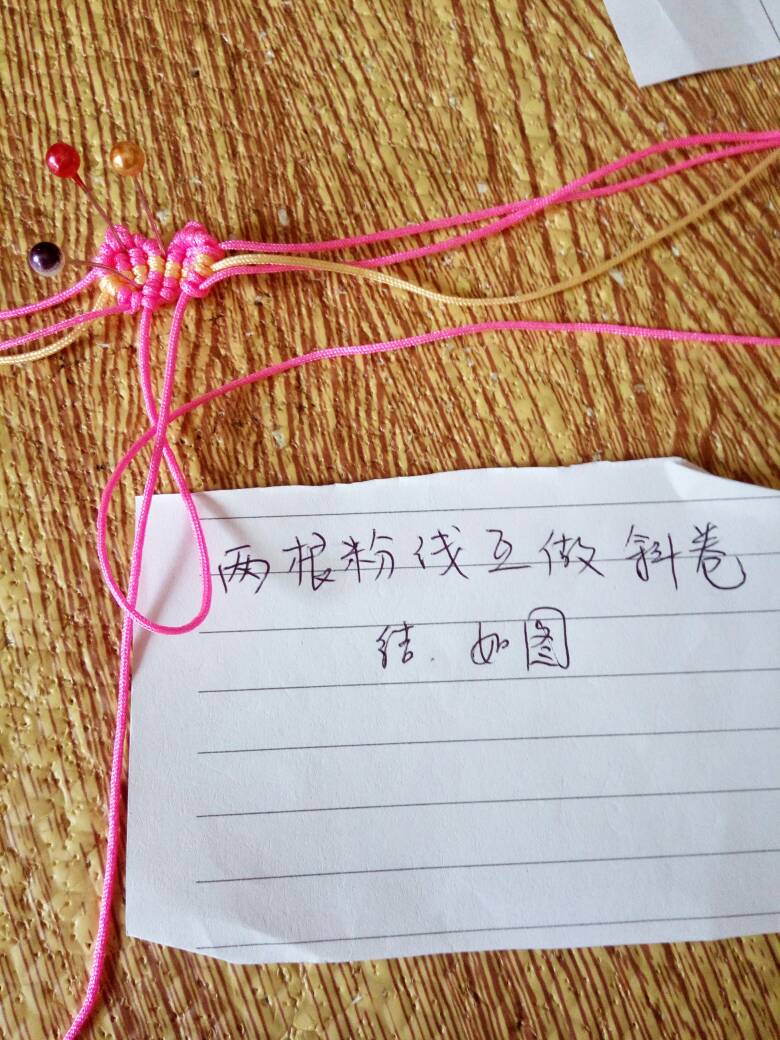 两根粉线互做斜卷
结.如图